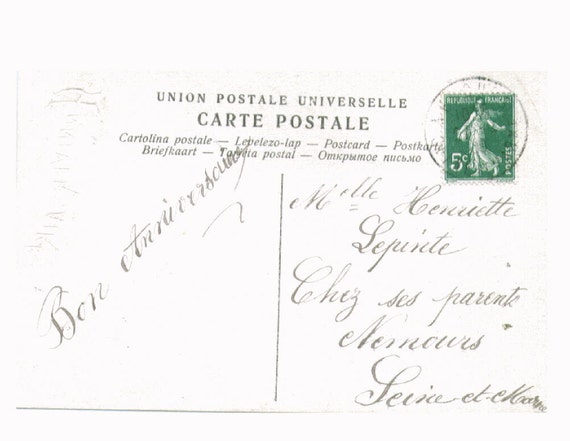 UNION POSTALE UNIVERSELLE
CARTE POSTALE
Cartolina postale — Levelezo-lap — Postcard — Postkarte
Briefkaart — Tarjeta postal — Открытое письмо
REPUBLIQUE FRANÇAISE
5c
POSTES
Bon Anniversaire
Melle Henriette
Lepinte
Chez ses parents
Nemours
Seine-et-Marne